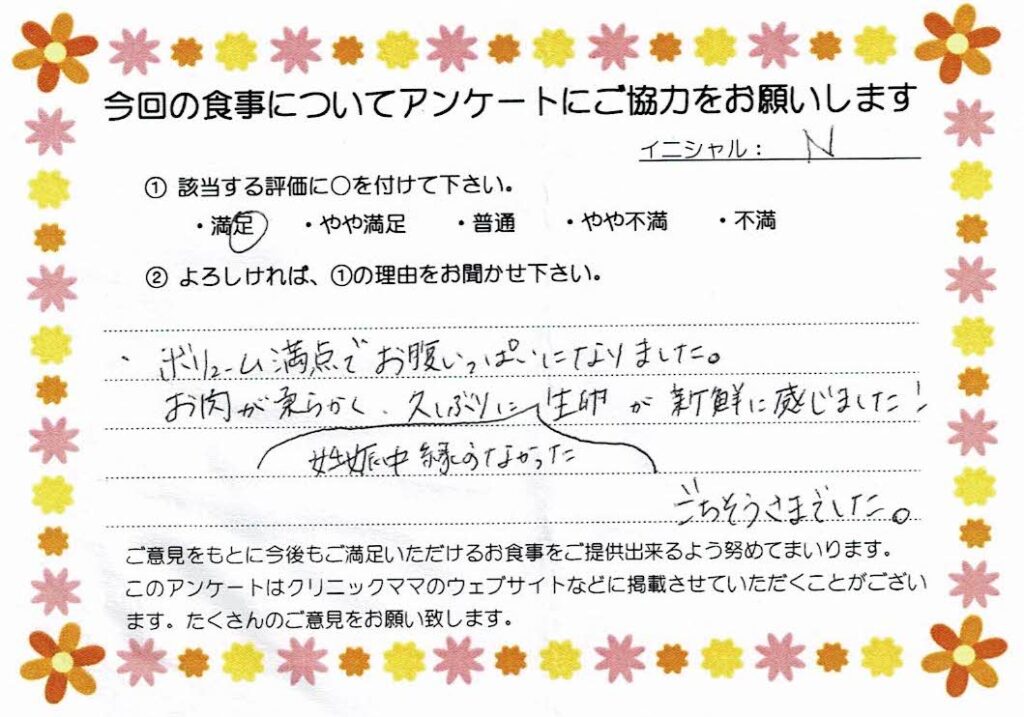 今回の食事についてアンケートにご協力をお願いします
イニシャル： N
① 該当する評価に○を付けて下さい。
・満足 ・やや満足 ・普通 ・やや不満 ・不満
② よろしければ、①の理由をお聞かせ下さい。
・ボリューム満点でお腹いっぱいになりました。
お肉が柔らかく、久しぶりに生卵が新鮮に感じました！
妊娠中縁のなかった
ごちそうさまでした。
ご意見をもとに今後もご満足いただけるお食事をご提供出来るよう努めてまいります。
このアンケートはクリニックママのウェブサイトなどに掲載させていただくことがござい
ます。たくさんのご意見をお願い致します。